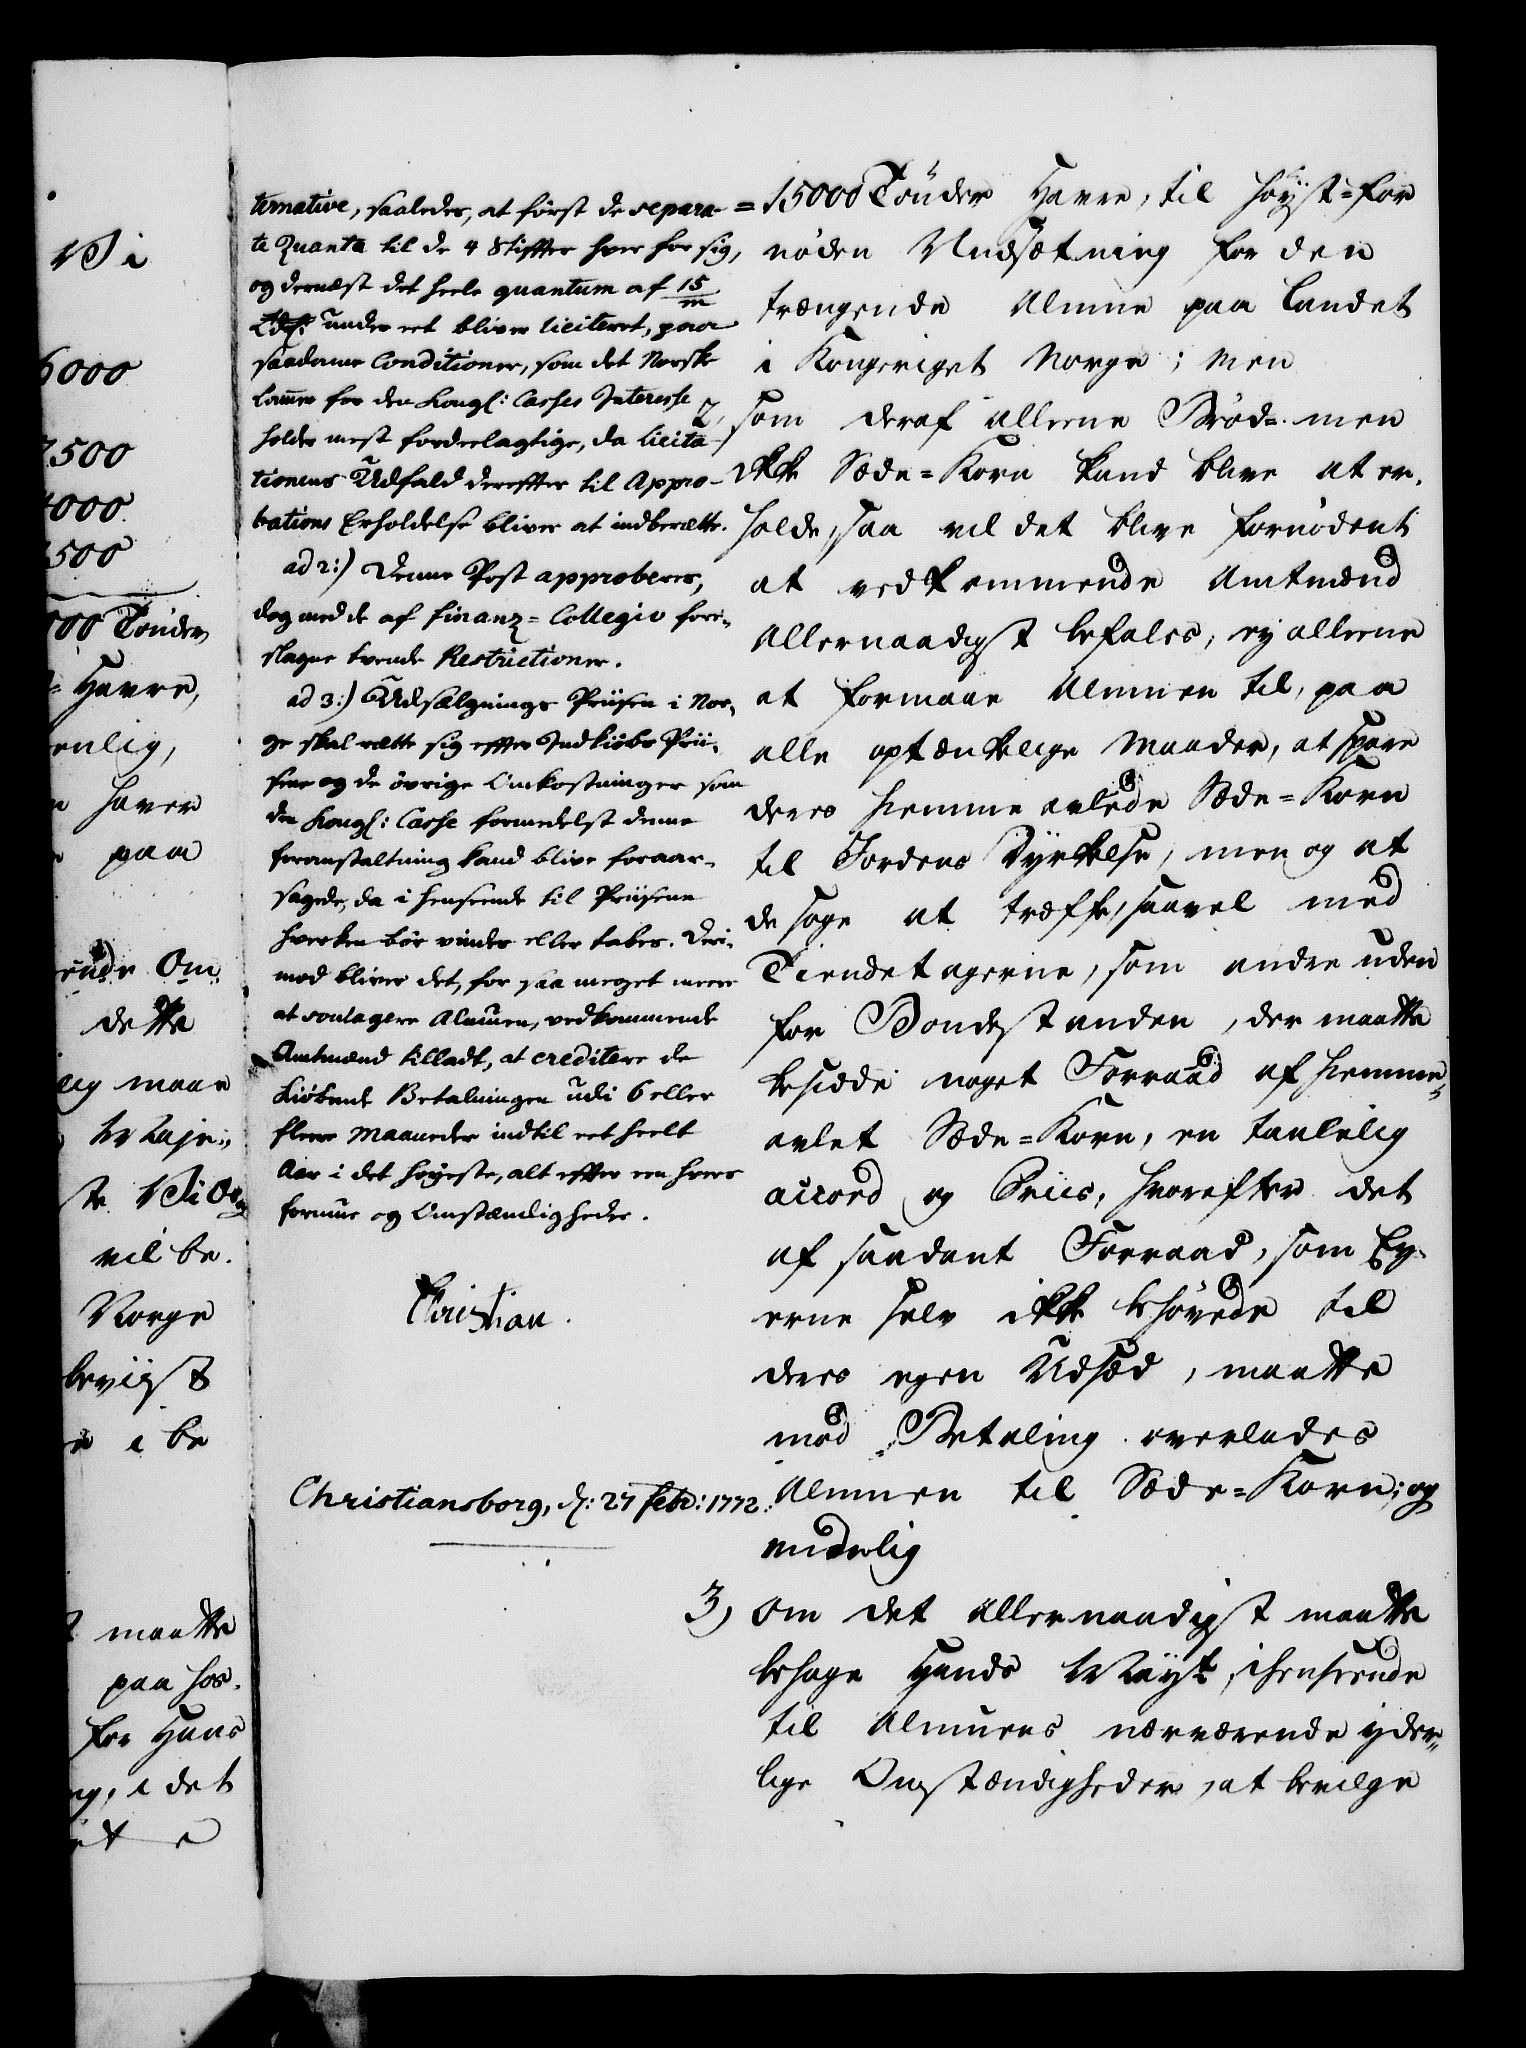 ternative, saaledes, at først de separa-
te Quanta til de 4 Stiffter hver for sig,
og dernæst det heele quantum af 15/m
Tdr: under eet bliver liciteret, paa
saadanne Conditioner, som det Norske
Camer for den Kongl: Casses Interesse
holder mest fordeelagtige, da licita-
tionens Udfald derefter til Appro-
bations Erholdelse bliver at indberette.
ad 2:) Denne Post approberes,
dog med de af Finanz-Collegio fore-
slagne tvende Restrictioner.
ad 3:) Udsælgnings Priisen i Nor-
ge skal rette sig efter Indkiøbs Prii-
sene og de øvrige Omkostninger som
den Kongl: Casse formedelst denne
foranstaltning kand blive foraar-
sagede, da i henseende til Priisene
hverken bør vindes eller tabes. Deri-
mod bliver det, for saa meget meere
at soulagere Almuen, vedkommende
Amtmænd tilladt, at creditere de
Kiøbende Betalningen udi 6 eller
fleere Maaneder indtil eet heelt
Aar i det høyeste, alt efter een hvers
formue og Omstændigheder.
Christian.
Christiansborg, d: 27 Febr: 1772.
= 15000 Tønder Havre, til høyst-for
nøden Undsætning for den
trængende Almue paa Landet
i Kongeriget Norge; Men
2, som deraf alleene Brød- men
ikke Sæde-Korn kand blive at er-
holde, saa vil det blive fornødent
at vedkommende Amtmænd
Allernaadigst befales, ej alleene
at formaae Almuen til, paa
alle optænkelige Maader, at spare
deres hiemme avlede Sæde-Korn
til Jordens Dyrkelse, men og at
de søge at træffe, saavel med
Tiendetagerne, som andre uden
for Bondestanden, der maatte
besidde noget Forraad af hiemme-
avlet Sæde-Korn, en taalelig
accord og Priis, hvorefter det
af saadant Forraad, som Ey-
erne selv ikke behøvede til
deres egen Udsæd, maatte
mod Betaling overlades
Almuen til Sæde-Korn; og
endelig
3, Om det allernaadigst maatte
behage Hands Mayt, i henseende
til Almuens nærværende yder-
lige Omstændigheder, at bevilge